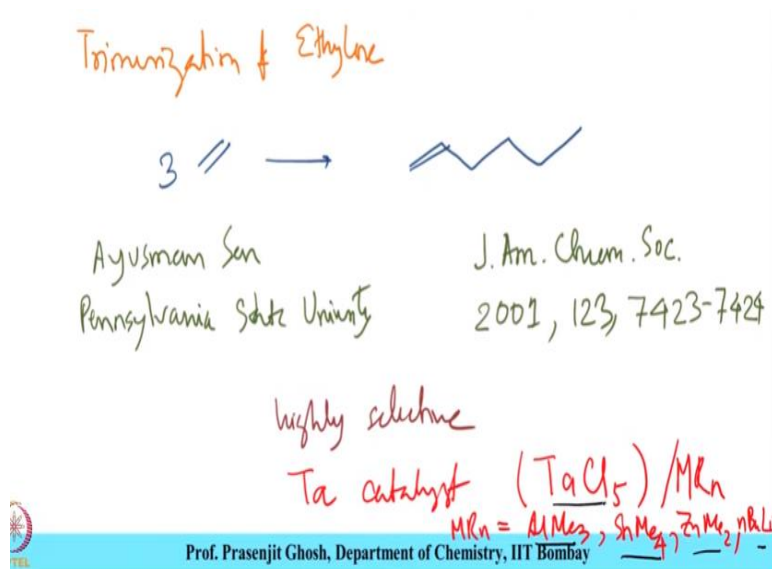 Trimerization of Ethylene
3
Ayusman Sen
Pennsylvania State University
J. Am. Chem. Soc.
2001, 123, 7423-7424
highly selective
Ta catalyst (TaCl5) / MRn
MRn = AlMe3, SnMe4, ZnMe2, nBuLi
Prof. Prasenjit Ghosh, Department of Chemistry, IIT Bombay